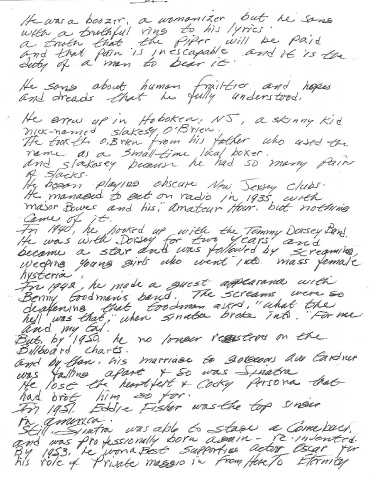 He was a boozer, a womanizer but he sang
with a truthful ring to his lyrics.
a truth that the piper will be paid
and that pain is inescapable and it is the
duty of a man to bear it.
He sang about human frailties, and hopes
and dreads that he fully understood.
He grew up in Hoboken, NJ, a skinny kid
nick-named Slaksey O'Brien.
He took the O.Brien from his father who used the
name as a small-time local boxer.
and Slaksey because he had so many pair
of slacks.
He began playing obscure New Jersey clubs.
He managed to get on radio in 1935, with
Major Bowes and his, Amateur Hour. but nothing
came of it.
In 1940, he hooked up with the Tommy Dorsey Band.
He was with Dorsey for two years and
became a star and was followed by screaming,
weeping young girls who went into mass female
hysteria.
In 1942, he made a guest appearance with
Benny Goodmans band. The screams were so
deafening that Goodman asked, "what the
hell was that," when Sinatra broke into. "For me
and my Gal.
But, by 1950, he no longer registered on the
Billboard charts.
and by then his marriage to gorgeous Ava Gardner
was falling apart & so was Sinatra
He lost the heartfelt & cocky persona that
had brot him so far.
In 1951. Eddie Fisher was the top singer
in america.
Still Sinatra was able to stage a comeback
and was professionally born again - re-invented.
By 1953, he won a Best Supporting Actor Oscar for
his role of Private Maggio in From Here To Eternity